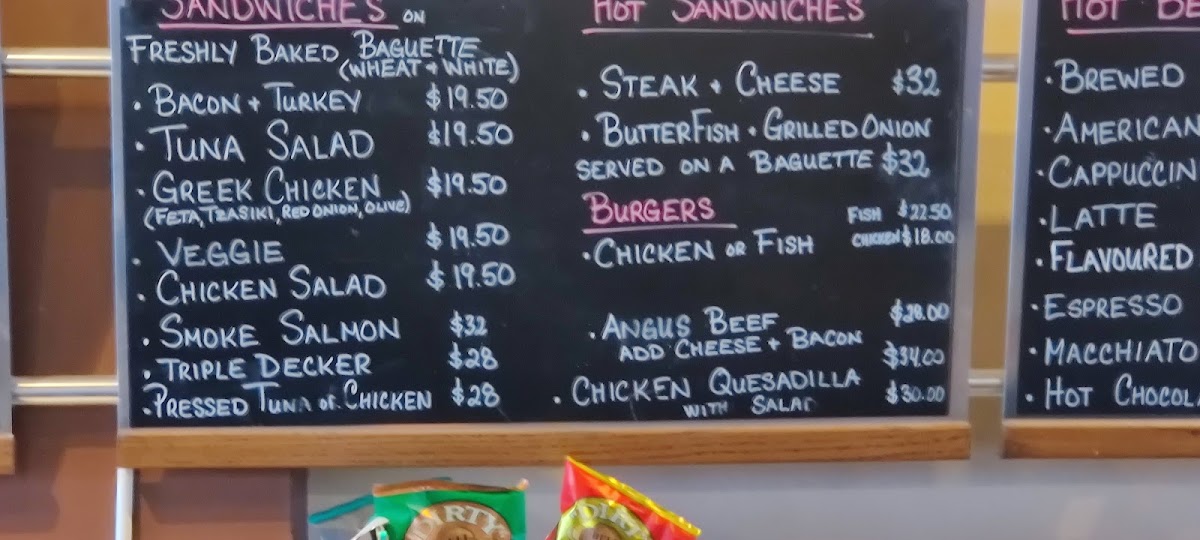 SANDWICHES ON
FRESHLY BAKED BAGUETTE
(WHEAT + WHITE)
• BACON + TURKEY $19.50
• TUNA SALAD $19.50
• GREEK CHICKEN $19.50
(FETA, TZASIKI, RED ONION, OLIVE)
• VEGGIE $19.50
• CHICKEN SALAD $19.50
• SMOKE SALMON $32
• TRIPLE DECKER $28
• PRESSED TUNA or CHICKEN $28
HOT SANDWICHES
• STEAK + CHEESE $32
• BUTTERFISH • GRILLED ONION
SERVED ON A BAGUETTE $32
BURGERS
• CHICKEN OR FISH
FISH $22.50
CHICKEN $18.00
• ANGUS BEEF $28.00
ADD CHEESE + BACON $34.00
• CHICKEN QUESADILLA $30.00
WITH SALAD
HOT BE
• BREWED
• AMERICAN
• CAPPUCCIN
• LATTE
• FLAVOURED
• ESPRESSO
• MACCHIATO
• HOT CHOCOL
DIRTY
DIRTY